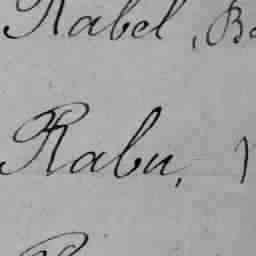 Rabel, Be
Rabu,